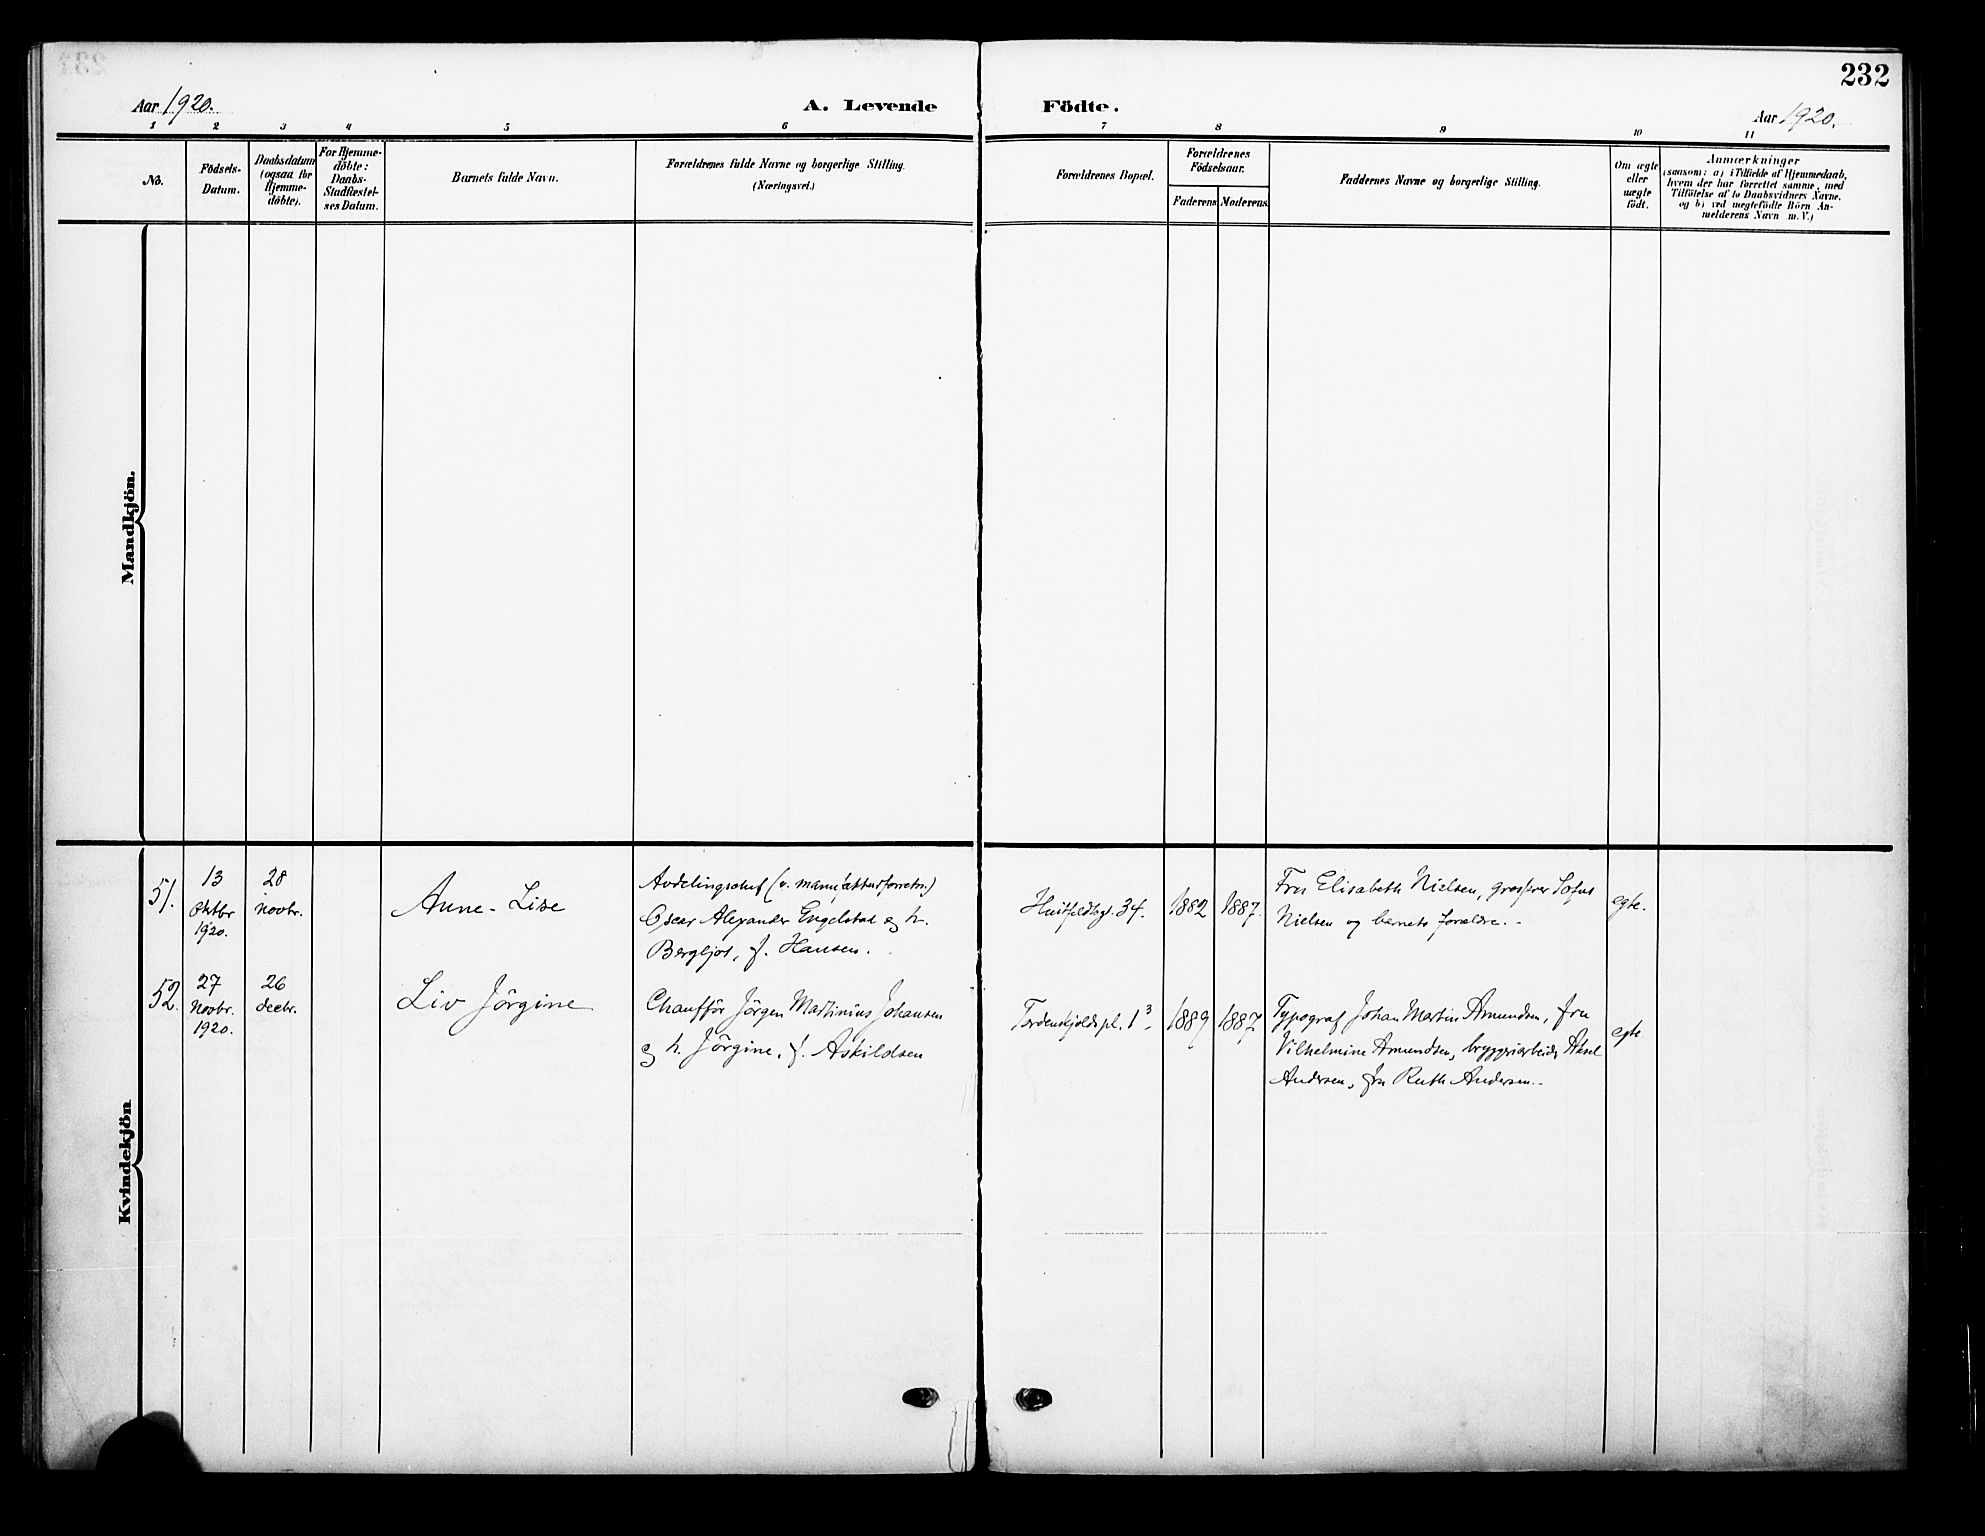 232
Aar 1920.
A. Levende Födte.
Aar 1920.
1 2 3 4 5 6 7 8 9 10 11
No.
Födsels-
Datum.
Daabsdatum
(ogsaa for
Hjemme-
döbte).
For Hjemme-
döbte:
Daabs-
Stadfæstel-
ses Datum.
Barnets fulde Navn.
Forældrenes fulde Navne og borgerlige Stilling.
(Næringsvei.)
Forældrenes Bopæl.
Forældrenes
Födselsaar.
Faderens Moderens.
Faddernes Navne og borgerlige Stilling.
Om ægte
eller
uægte
födt.
Anmærkninger
(saasom: a) i Tilfælde af Hjemmedaab,
hvem der har forrettet samme, med
Tilföielse af to Daabsvidners Navne,
og b) ved uægtefödte Börn An-
melderens Navn m. V.)
Mandkjön.
Kvindekjön
51.
13
Oktbr
1920.
28
novbr.
Anne-Lise
Avdelingschef (v. manufakturforretn.)
Oscar Alexander Engelstad og h.
Bergljot, f. Hansen.
Huitfeldtsgt. 34.
1882
1887.
Fru Elisabeth Nielsen, grosserer Sofus
Nielsen og barnets forældre.
egte.
52.
27
Novbr.
1920.
26
decbr.
Liv Jörgine
Chaufför Jörgen Martinius Johansen
og h. Jörgine, f. Askildsen
Tordenskjolds pl. 1 3
1889
1887
Typograf Johan Martin Amundsen, fru
Vilhelmine Amundsen, bryggeriarbeider Aksel
Andersen, fru Ruth Andersen.
egte.